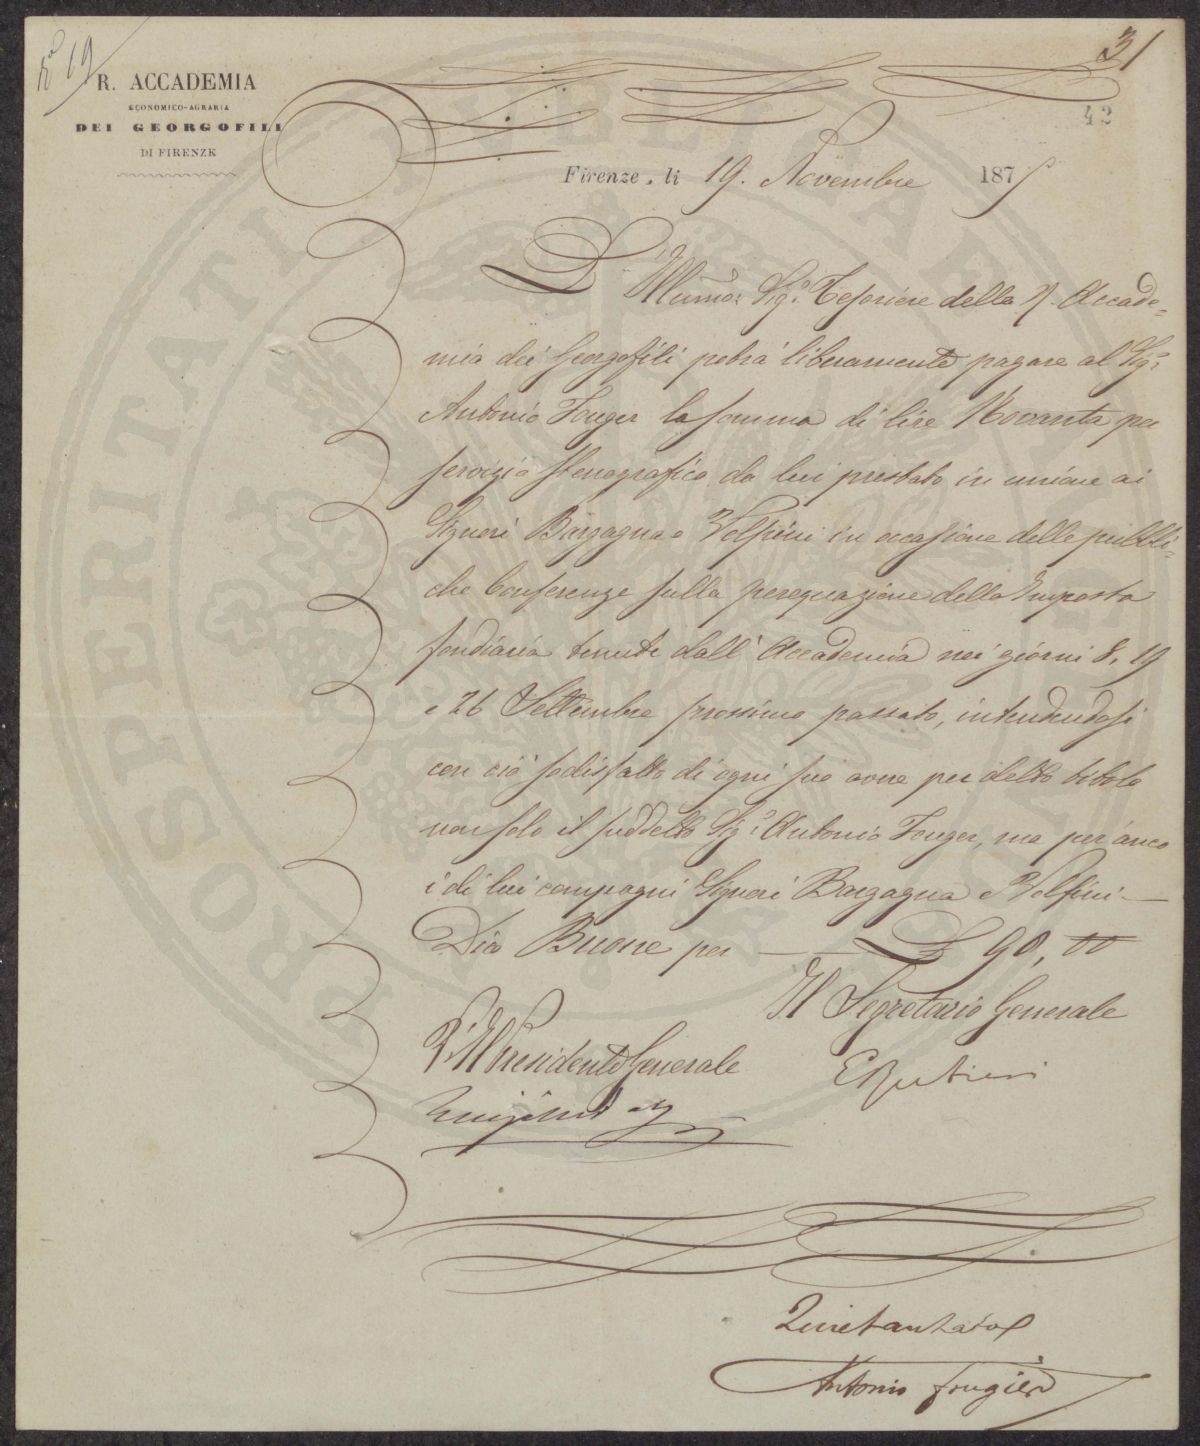 N° 19
31
42
R. ACCADEMIA
ECONOMICO-AGRARIA
DEI GEORGOFILI
DI FIRENZE
Firenze, li 19. Novembre 187
L'Illumo: Sig.e Tesoriere della R. Accade=
mia dei Georgofili potrà liberamente pagare al Sig.e
Antonio Fouger la somma di lire Novanta per
servizio stenografico da lui prestato in unione ai
Signori Bargagna e Volpini in occasione delle pubbli=
che Conferenze sulla perequazione della Imposta
fondiaria tenute dall'Accademia nei giorni 8, 19
e 26 Settembre prossimo passato, intendendosi
con ciò sodisfatto di ogni suo avere per detto titolo
non solo il suddetto Sig.e Antonio Fouger, ma per anco
i di lui compagni Signori Bargagna e Volpini.—
Dico Buone per — £ 90, 00
Il Segretario Generale
P. Il Presidente Generale
Quietanzato
Antonio Fougier
PROSPERITATI PUBLICAE AUGENDAE